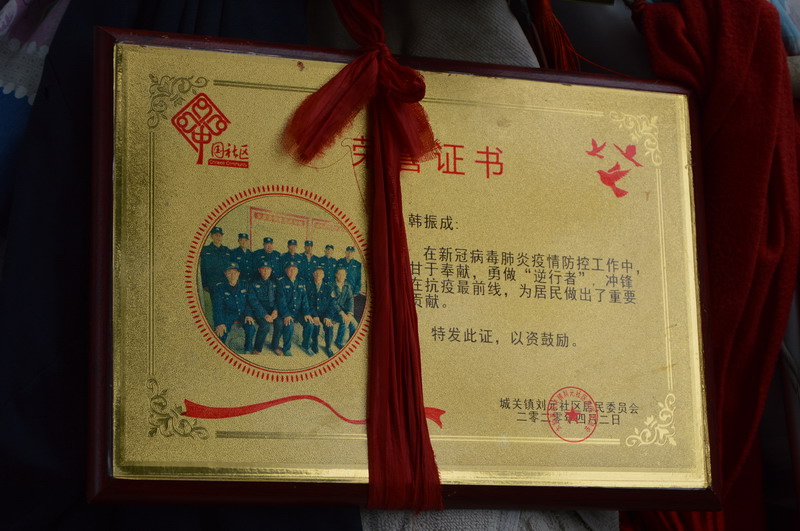 中国社区
荣誉证书
韩振成:
在新冠病毒肺炎疫情防控工作中,
甘于奉献,勇做“逆行者”,冲锋
在抗疫最前线,为居民做出了重要
贡献。
特发此证,以资鼓励。
城关镇刘元社区居民委员会
二零二零年四月二日